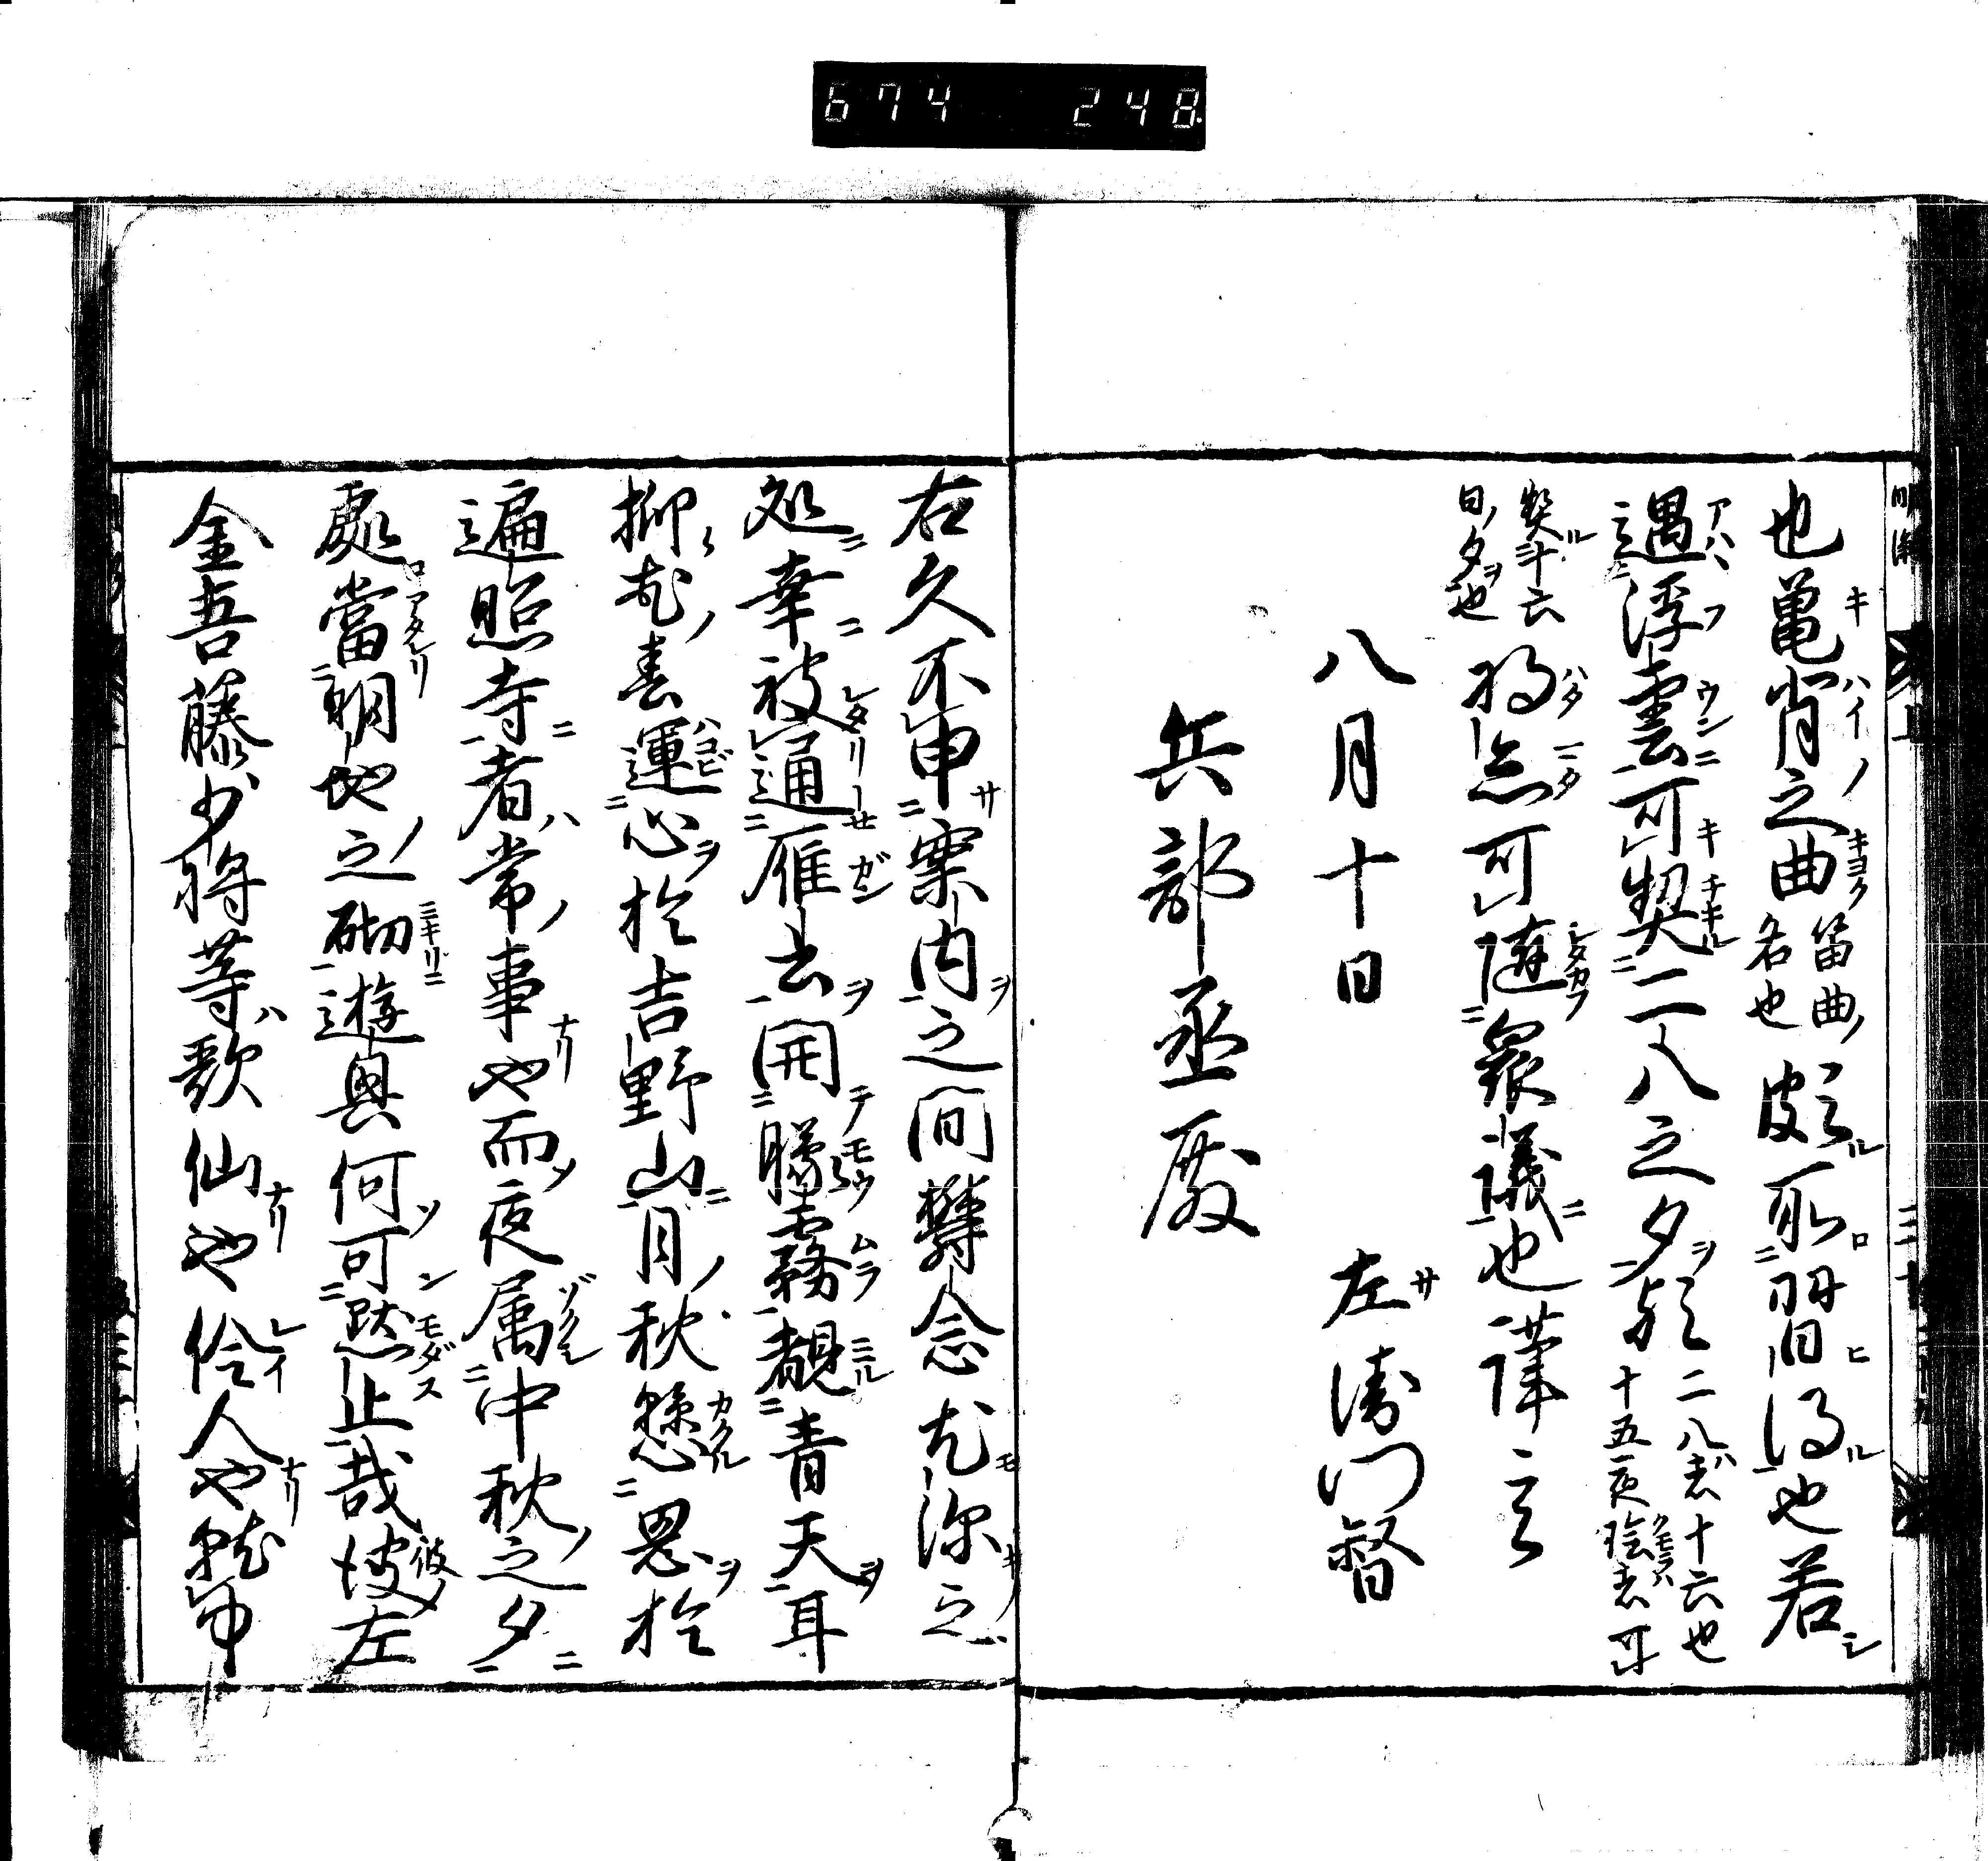 674 248
也亀背之曲笛曲名也頗所習得也若
遇浮雲可契二八之夕歟二八者十六也十五夜陰者可
契十六日夕也将亦可随衆議也謹言
八月十日 左衛門督
兵部丞殿
右久不申案内之間欝念尤深之
処幸被通雁書開朦霧覩青天耳
抑花春運心於吉野山月秋懸思於
遍照寺者常事也而夜属中秋之夕
處當朝地之砌遊興何可黙止哉彼左
金吾藤少将等歌仙也伶人也就中